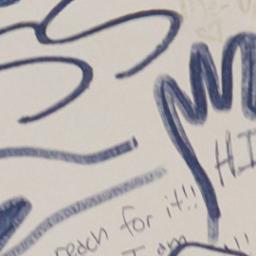 HI
reach for it!!
I am !!